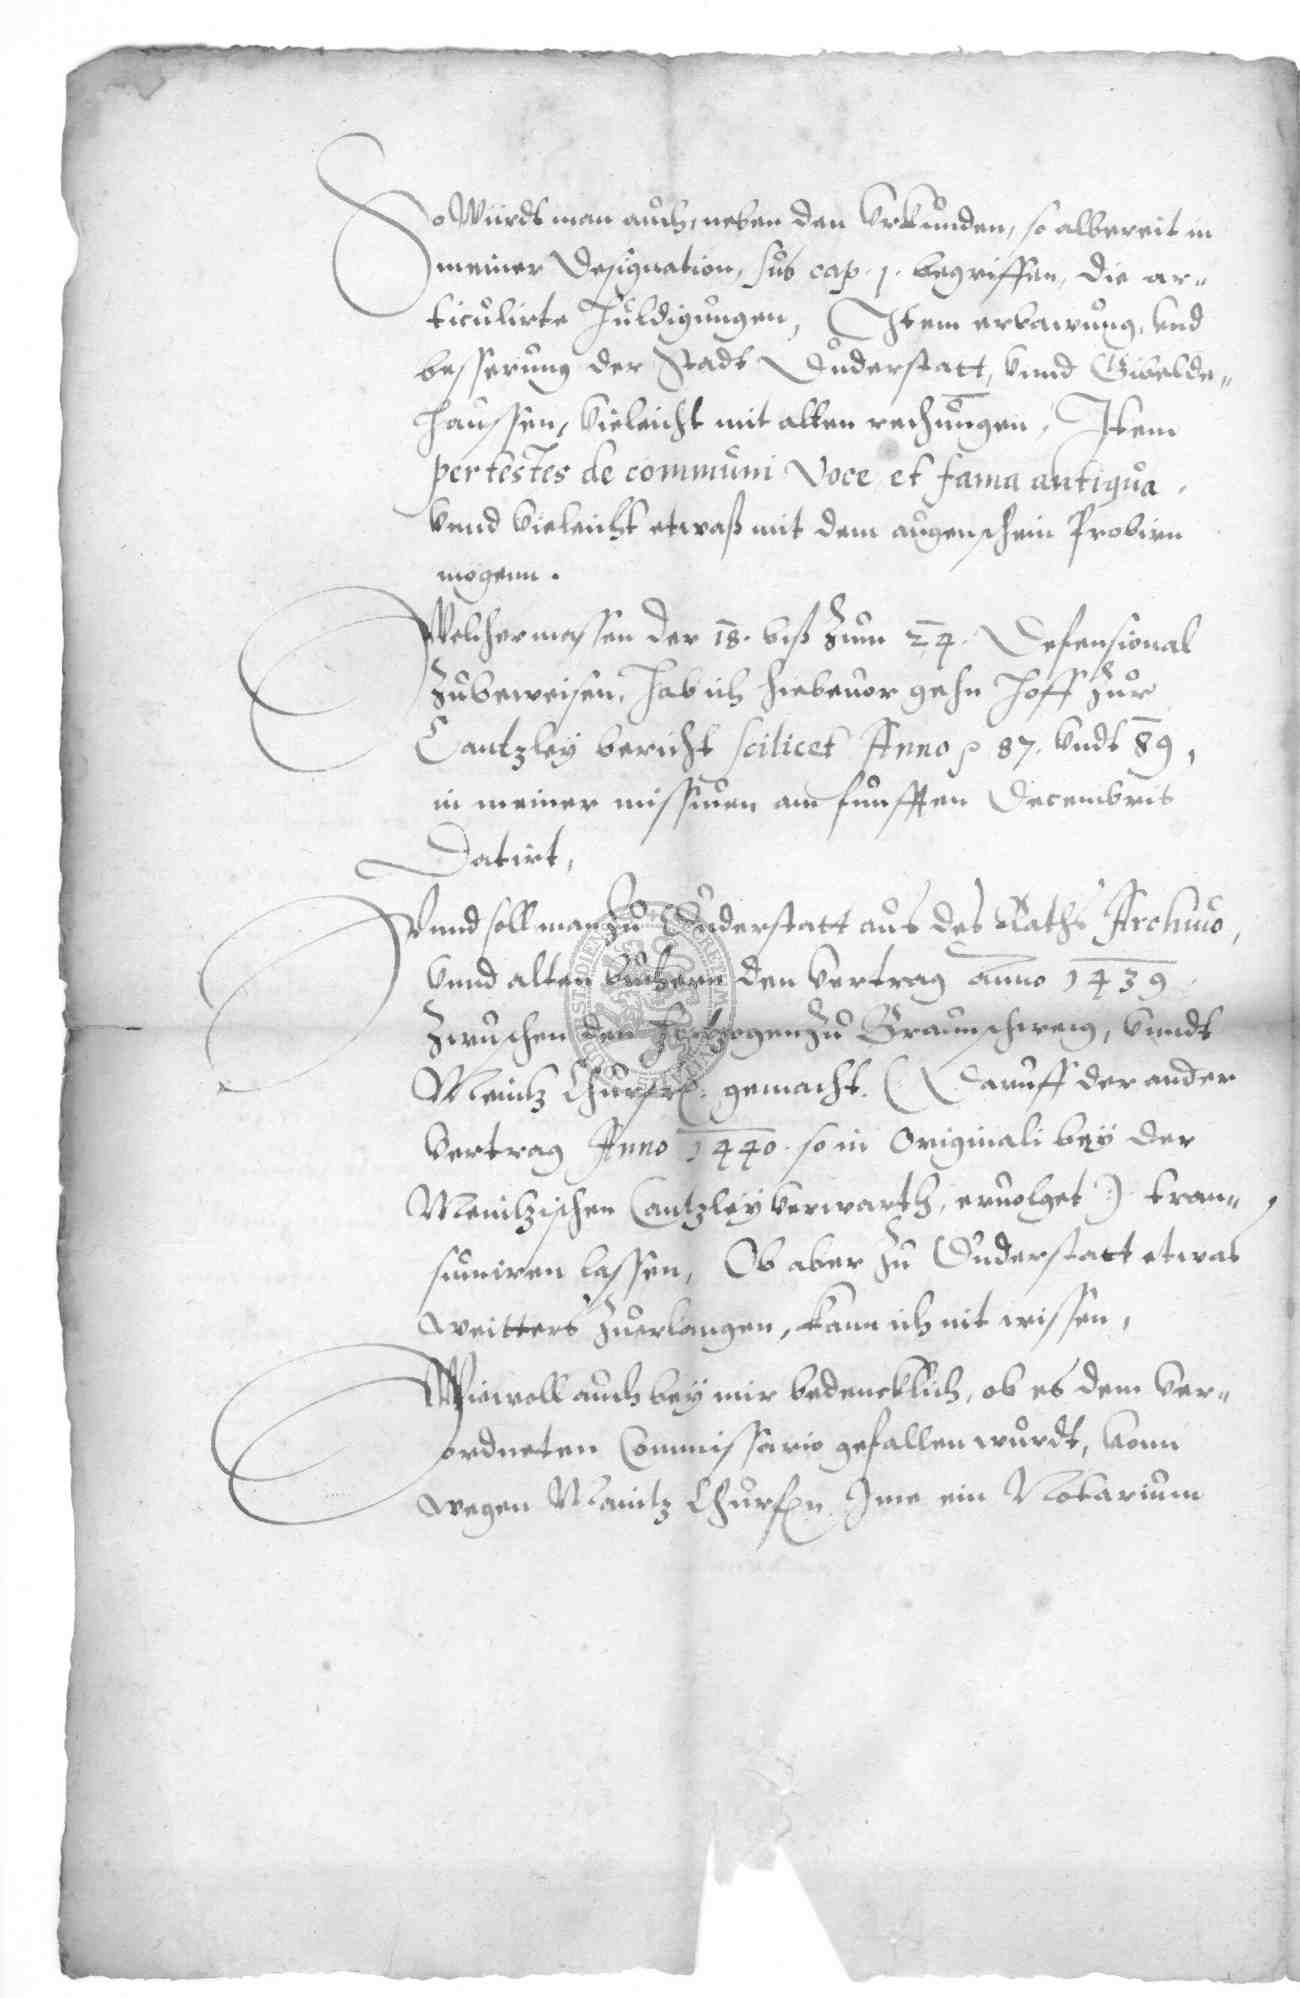 So Würdt man auch, neben den Vrkunden, so albereit in
meiner Designation, sub cap. 1. begriffen, die ar=
ticulirte Huldigungen, Ittem erbawung, vnd
besserung der Stadt Duderstatt, vnnd Gibelde=
haussen, vieleicht mit alten rechnungen, Item
per testes de communi voce et fama antiqua,
vnnd vieleicht etwaß mit dem augenschein Probirn
mogenn.
Welchermassen der 18. biß zum 24. Defensional
zubeweisen, hab ich hiebeuor gehn Hoff zur
Cantzley bericht scilicet Anno p 87. vndt 89,
in meiner missiuen am funfften Decembris
Datirt,
Vnnd soll man zu Duderstatt aus des Raths Archiuo,
vnnd alten buchern den Vertrag anno 1439
Zwuschen den Hertzogen zu Braunschweig, vnndt
Meintz Churf. gemacht. (Daruff der ander
Vertrag Anno 1440. so in Originali bey der
Meintzischen Cantzley verwarth, eruolget) tran=
sumiren lassen, Ob aber zu Duderstatt etwas
weitters zuerlangen, kann ich nit wissen,
Wiewoll auch bey mir bedencklich, ob es dem ver=
ordneten Commissario gefallen wurdt, vonn
wegen Maintz Churfn. Ime ein Notarium